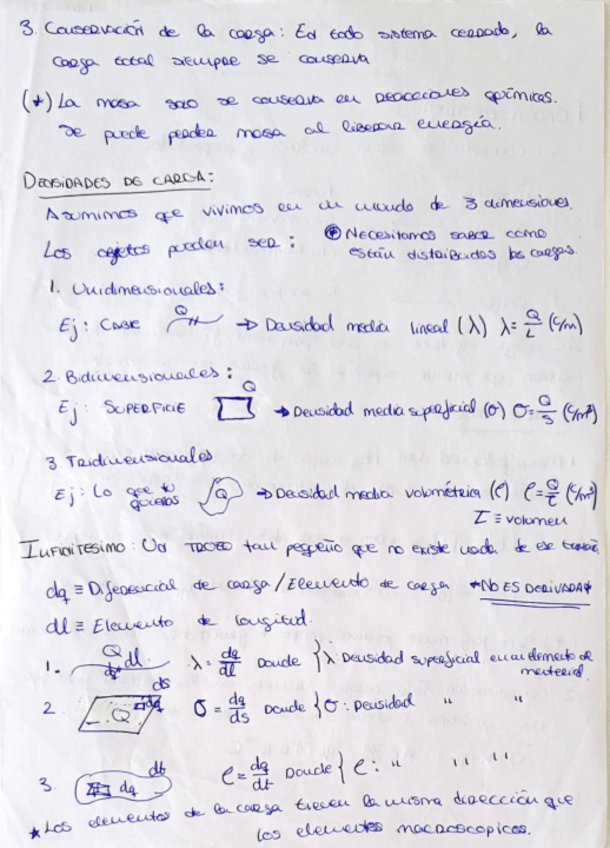 3. Conservación de la carga: En todo sistema cerrado, la
carga total siempre se conserva
(*) La masa solo se conserva en reacciones químicas.
Se puede perder masa al liberar energía.
DENSIDADES DE CARGA:
Asumimos que vivimos en un mundo de 3 dimensiones.
Los objetos pueden ser: * Necesitamos saber como
están distribuidas las cargas.
1. Unidimensionales:
Ej: CABLE Q → Densidad media lineal (λ) λ = Q/L (C/m)
2. Bidimensionales: Q
Ej: SUPERFICIE → Densidad media superficial (σ) σ = Q/S (C/m²)
3. Tridimensionales
Ej: Lo que tú quieras Q → Densidad media volumétrica (ρ) ρ = Q/τ (C/m³)
τ ≡ volumen
INFINITESIMO: Un TROZO tan pequeño que no existe nada de ese tamaño
dq ≡ Diferencial de carga / Elemento de carga *NO ES DERIVADA*
dl ≡ Elemento de longitud.
1. Q dl dq λ = dq/dl Donde { λ: Densidad superficial en un elemento de
material.
2. Q ds dq σ = dq/ds Donde { σ: Densidad " "
3. dτ dq ρ = dq/dτ Donde { ρ: " " "
* Los elementos de la carga tienen la misma dirección que
los elementos macroscopicos.